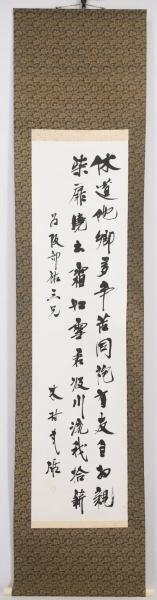 休道他郷多辛苦同袍有友自相親
柴扉暁出霜如雪君汲川流我拾薪
為阪部
兄